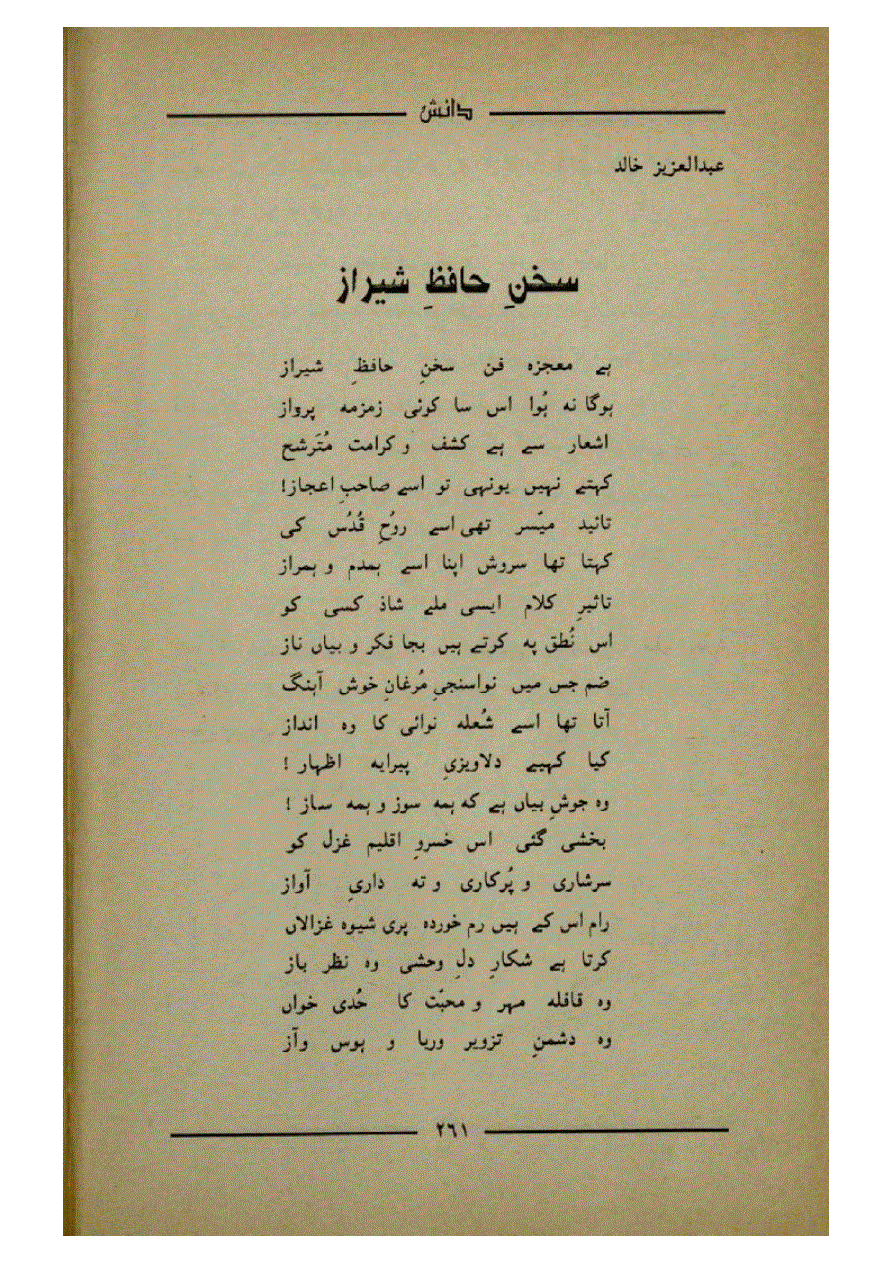 دانش
عبدالعزیز خالد
سخنِ حافظِ شیراز
ہے معجزہ فن سخنِ حافظِ شیراز
ہوگا نہ ہُوا اس سا کوئی زمزمہ پرواز
اشعار سے ہے کشف و کرامت مُتَرشح
کہتے نہیں یونہی تو اسے صاحبِ اعجاز!
تائید میّسر تھی اسے روُحِ قُدُس کی
کہتا تھا سروش اپنا اسے ہمدم و ہمراز
تاثیرِ کلام ایسی ملے شاذ کسی کو
اس نُطق پہ کرتے ہیں بجا فکر و بیاں ناز
ضم جس میں نواسنجیِ مُرغانِ خوش آہنگ
آتا تھا اسے شُعلہ نوائی کا وہ انداز
کیا کہیے دلاویزیِ پیرایہ اظہار !
وہ جوشِ بیاں ہے کہ ہمہ سوز و ہمہ ساز !
بخشی گئی اس خسروِ اقلیم غزل کو
سرشاری و پُرکاری و تہ داریِ آواز
رام اس کے ہیں رم خوردہ پری شیوہ غزالاں
کرتا ہے شکارِ دلِ وحشی وہ نظر باز
وہ قافلہ مہر و محبّت کا حُدی خواں
وہ دشمنِ تزویر وریا و ہوس وآز
۲۶۱